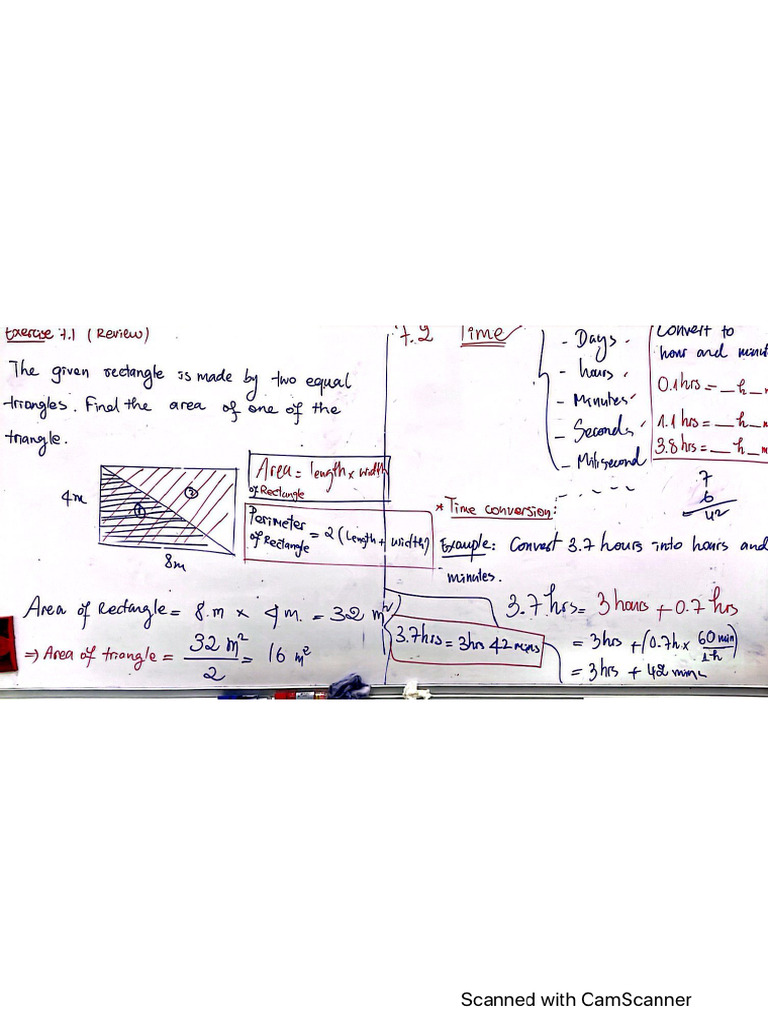 Exercise 7.1 (Review)
The given rectangle is made by two equal
triangles. Find the area of one of the
triangle.
4m
①
②
8m
Area = length x width
of Rectangle
Perimeter
of Rectangle = 2 (Length + width)
Area of Rectangle = 8.m x 4 m. = 32 m²
⇒ Area of triangle = 32 m² / 2 = 16 m²
7.2 Time
- Days
- hours
- Minutes
- Seconds
- Milisecond
- - - - -
Convert to
hour and minut
0.1hrs = _h_
1.1 hrs = _h_
3.8 hrs = _h_
7
6
42
* Time conversion:
Example: Convert 3.7 hours into hours and
minutes.
3.7 hrs = 3 hours + 0.7 hrs
= 3hrs + (0.7h x 60 min / 1h)
= 3 hrs + 42 mins
3.7hrs = 3hrs 42 mins
Scanned with CamScanner